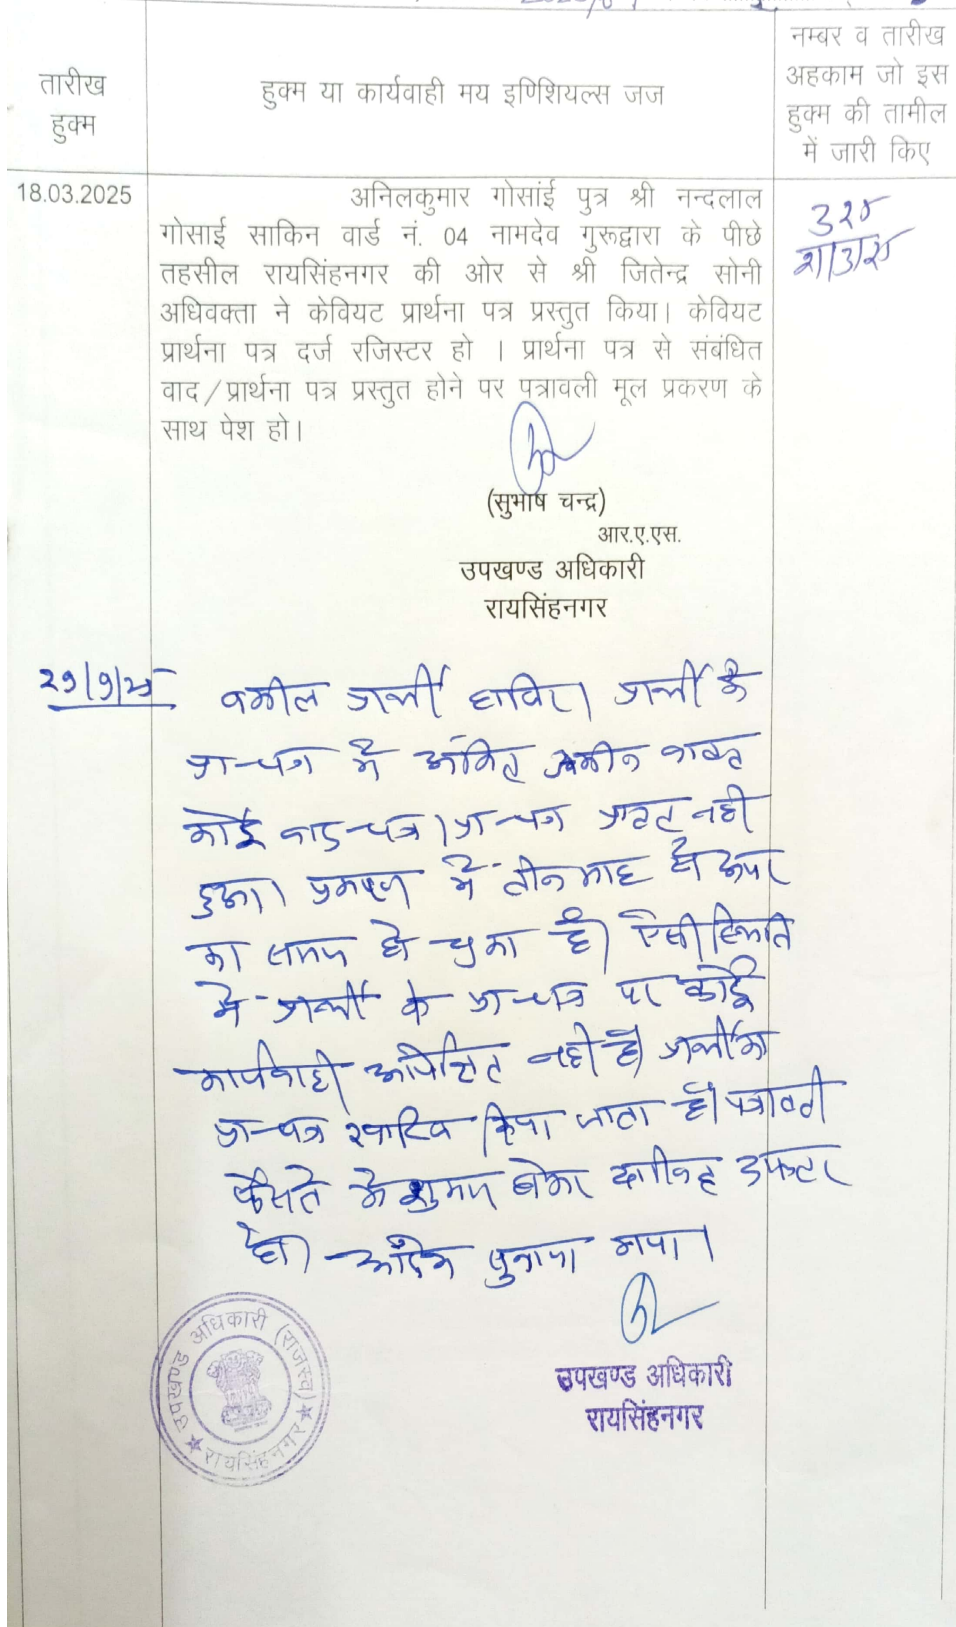 तारीख
हुक्म
हुक्म या कार्यवाही मय इणिशियल्स जज
नम्बर व तारीख
अहकाम जो इस
हुक्म की तामील
में जारी किए
18.03.2025
अनिलकुमार गोसांई पुत्र श्री नन्दलाल
गोसाई साकिन वार्ड नं. 04 नामदेव गुरूद्वारा के पीछे
तहसील रायसिंहनगर की ओर से श्री जितेन्द्र सोनी
अधिवक्ता ने केवियट प्रार्थना पत्र प्रस्तुत किया। केवियट
प्रार्थना पत्र दर्ज रजिस्टर हो । प्रार्थना पत्र से संबंधित
वाद/प्रार्थना पत्र प्रस्तुत होने पर पत्रावली मूल प्रकरण के
साथ पेश हो।
(सुभाष चन्द्र)
आर.ए.एस.
उपखण्ड अधिकारी
रायसिंहनगर
वकील प्रार्थी हाजिर। प्रार्थी के
प्रा-पत्र में अंकित जमीन बाबत
कोई वाद-पत्र/प्रा-पत्र प्राप्त नही
हुआ। प्रकरण में तीन माह से ऊपर
का समय हो चुका है। ऐसी स्थिति
में प्रार्थी के प्रा-पत्र पर कोई
कार्यवाही अपेक्षित नही है। प्रार्थी का
प्रा-पत्र खारिज किया जाता है। पत्रावली
फैसले मे शुमार होकर दाखिल दफ्तर
हो। आदेश सुनाया गया।
उपखण्ड अधिकारी
रायसिंहनगर
उपखण्ड अधिकारी (राजस्व)
रायसिंहनगर